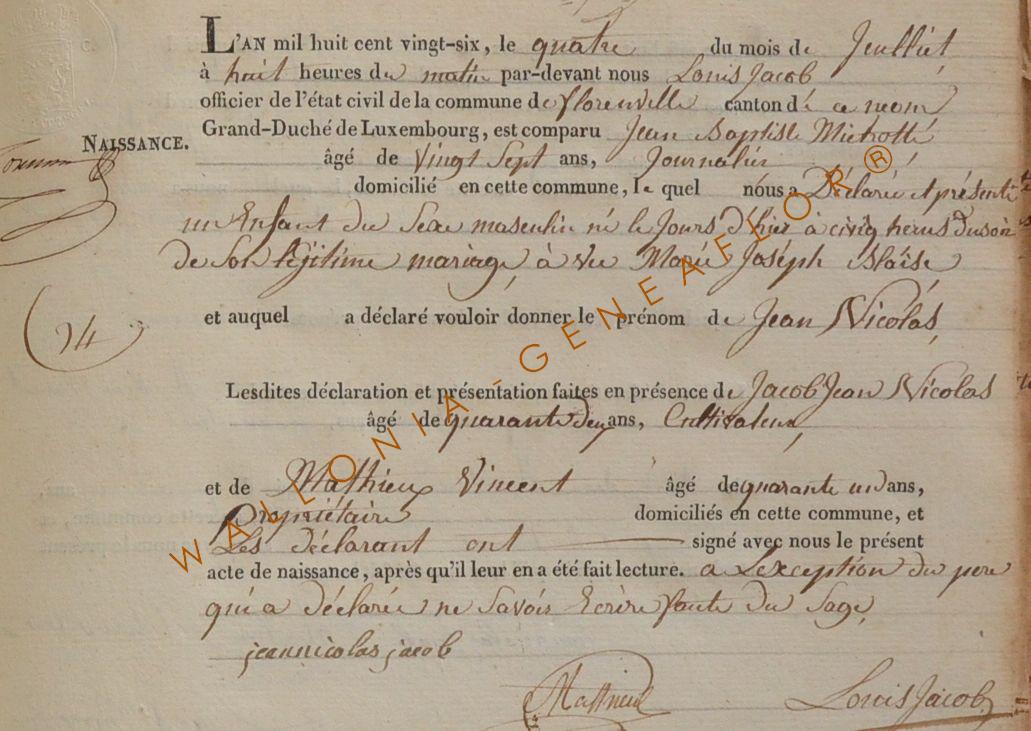 L'AN mil huit cent vingt-six, le quatre du mois de Jeulliet
à huit heures du matin par-devant nous Louis Jacob
officier de l'état civil de la commune de florenville canton dé ce neom
Grand-Duché de Luxembourg, est comparu Jean Baptiste Michotte
NAISSANCE.
âgé de Vingt Sept ans, Journalier
domicilié en cette commune, le quel nous a Déclaré et présenté
un Enfant du Sexe masculin né le Jours d'hier à cinq heurs du soir
de Son légitime mariage, à vec Marie Joséph Blaise
et auquel a déclaré vouloir donner le prénom de Jean Nicolas
74
Lesdites déclaration et présentation faites en présence de Jacob Jean Nicolas
âgé de quarante deux ans, Cultivateur
et de Mathieu Vincent âgé de quarante un ans,
Propriétaire domiciliés en cette commune, et
Les déclarant ont signé avec nous le présent
acte de naissance, après qu'il leur en a été fait lecture. a L'exception du pere
qui a déclaré ne Savoir Ecrire faute du Sage
jeannicolas jacob
Mathieu Louis Jacob
WALLONIA-GENEAFLOR®